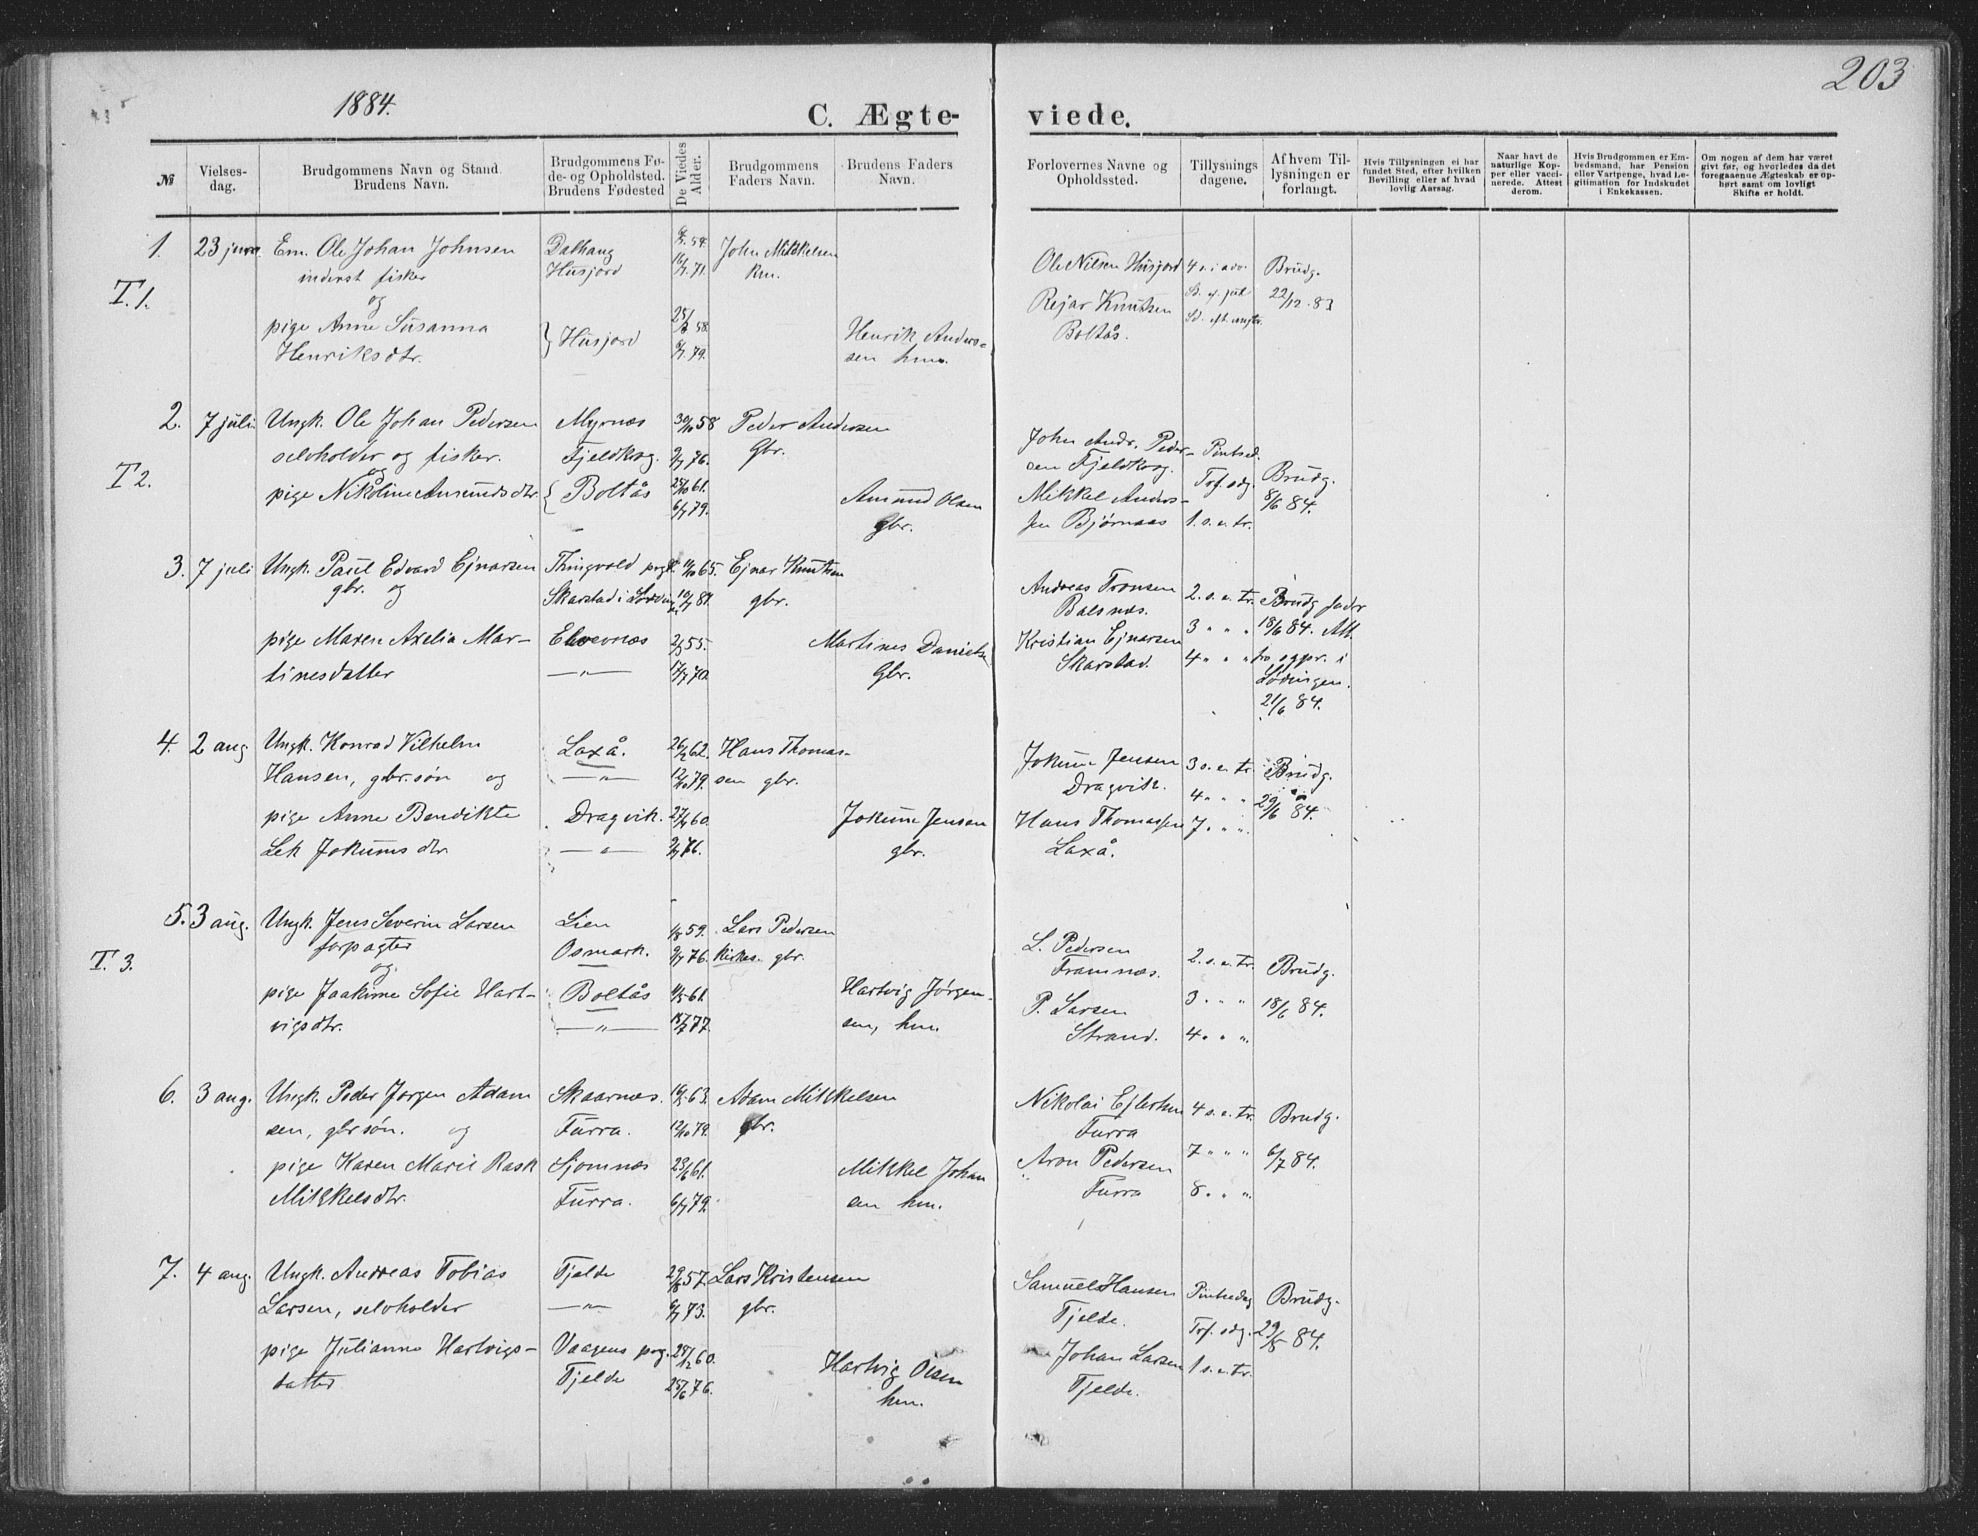 203
1884.
C. Ægte- viede.
№
Vielses-
dag.
Brudgommens Navn og Stand
Brudens Navn.
Brudgommens Fø-
de- og Opholdsted.
Brudens Fødested
De Viedes
Alder.
Brudgommens
Faders Navn.
Brudens Faders
Navn.
Forlovernes Navne og
Opholdssted.
Tillysnings
dagene.
Af hvem Til-
lysningen er
forlangt.
Hvis Tillysningen ei har
fundet Sted, efter hvilken
Bevilling eller af hvad
lovlig Aarsag.
Naar havt de
naturlige Kop-
per eller vacci-
nerede. Attest
derom.
Hvis Brudgommen er Em-
bedsmand, har Pension
eller Vartpenge, hvad Le-
gitimation for Indskudt
i Enkekassen.
Om nogen af dem har været
givt før, og hvorledes da det
foregaaende Ægteskab er op-
hørt samt om lovligt
Skifte er holdt.
1.
T.1.
23 juni
Em. Ole Johan Johnsen
inderst fisker
og
pige Anne Susanna
Henriksdtr.
Dalhaug
Husjord
Husjord
John Mikkelsen
hm.
Henrik Anders-
sen hm.
Ole Nilsen Husjord
Rejar Knutsen
Boltås.
4 s. i adv.
S. e. jul
Brudg.
22/12 83
2.
T2.
7 juli
Ungk. Ole Johan Pedersen
selvholder og fisker.
og
pige Nikoline Amundsdtr.
Myrnæs
Fjeldkrog.
Boltås
30/10 58
9/7 76.
25/10 61.
6/7 79.
Peder Andersen
Gbr.
Amund Olsen
gbr.
John Andr. Peder-
sen Fjeldkrog.
Mikkel Anders-
sen Bjørnaas
Pintsed.
Tref. sdg.
1. s. e. tr.
Brudg.
8/6 84.
3.
7 juli
Ungk. Paul Edvard Ejnarsen
gbr. og
pige Maren Axelia Mar-
tinesdatter
Thingvold prgj.
Skarstad i Lødingen
Elvevnæs
— " —
65.
81.
2/5 55.
17/7 70.
Ejnar Knutsen
gbr.
Martines Daniels
Gbr.
Andreas Tronsen
Balsnæs.
Kristian Ejnarsen
Skarstad.
2. s. e. tr.
3 " " "
4 " " "
Brudg fader
18/6 84. Att.
fra sgpr. i
Lødingen.
21/6 84.
4.
2 aug
Ungk. Konrad Vilhelm
Hansen, gbr.søn og
pige Anne Bendikte
Lek Jokumsdtr.
Laxå.
— " —
Dragvik.
— " —
26/2 62.
12/10 79.
27/4 60.
9/7 76.
Hans Thomas-
sen gbr.
Jokum Jensen
gbr.
Jokum Jensen
Dragvik.
Hans Thomassen
Laxå.
3 s. e. tr.
4 " " "
7. " "
Brudg.
29/6 84.
5.
T. 3.
3 aug.
Ungk. Jens Severin Larsen
forpagter
og
pige Joakime Sofie Hart-
vigsdtr.
Lien
Osmark.
Boltås
— " —
1/8 59.
9/7 76.
4/5 61.
77.
Lars Pedersen
gbr.
Hartvig Jørgen-
sen, hm.
L. Pedersen
Framnæs.
P. Larsen
Strand.
2. s. e. Tr.
3. " "
4. " "
Brudg.
18/6 84.
6.
3 aug.
Ungk. Peder Jørgen Adam
sen, gbr.søn. og
pige Karen Marie Rask
Mikkelsdtr.
Skaarnæs.
Furra.
Sjomnæs
Furra.
63.
12/10 79.
61.
6/7 79.
Adam Mikkelsen
gbr.
Mikkel Johan
sen hm.
Nikolai Ejlertsen
Furra
Aron Pedersen
Furra
4 s. e. tr.
7 " " "
8. " "
Brudg.
6/7 84.
7.
4 aug.
Ungk. Andreas Tobias
Larsen, selvholder
pige Julianne Hartvigs-
datter
Tjelde
— " —
Vaagens prg.
Tjelde
57.
6/7 73.
60.
25/6 76.
Lars Kristensen
gbr.
Hartvig Olsen
hm.
Samuel Hansen
Tjelde.
Johan Larsen
Tjelde.
Pintsedag
Tref. sdg.
1 s. e. tr.
Brudg.
29/5 84.